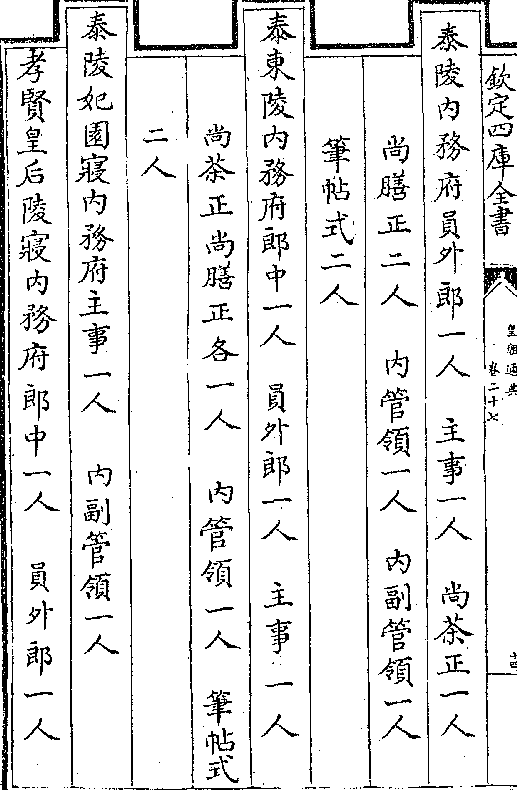 欽定四庫全書
皇朝通典
卷二十七
十四
泰陵内務府員外郎一人　主事一人　尚茶正一人
尚膳正二人　内管領一人　内副管領一人
筆帖式二人
泰東陵内務府郎中一人　員外郎一人　主事一人
尚茶正尚膳正各一人　内管領一人　筆帖式
二人
泰陵妃園寢内務府主事一人　内副管領一人
孝賢皇后陵寢内務府郎中一人　員外郎一人